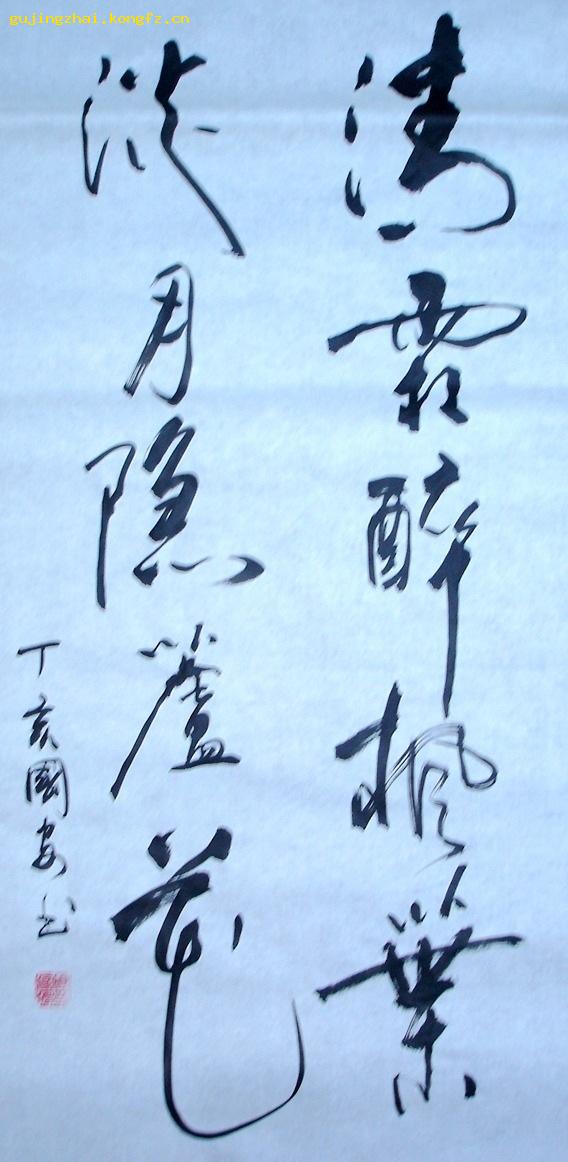 gujingzhai.kongfz.cn
清霜醉枫葉
淡月隐蘆花
丁亥國安书